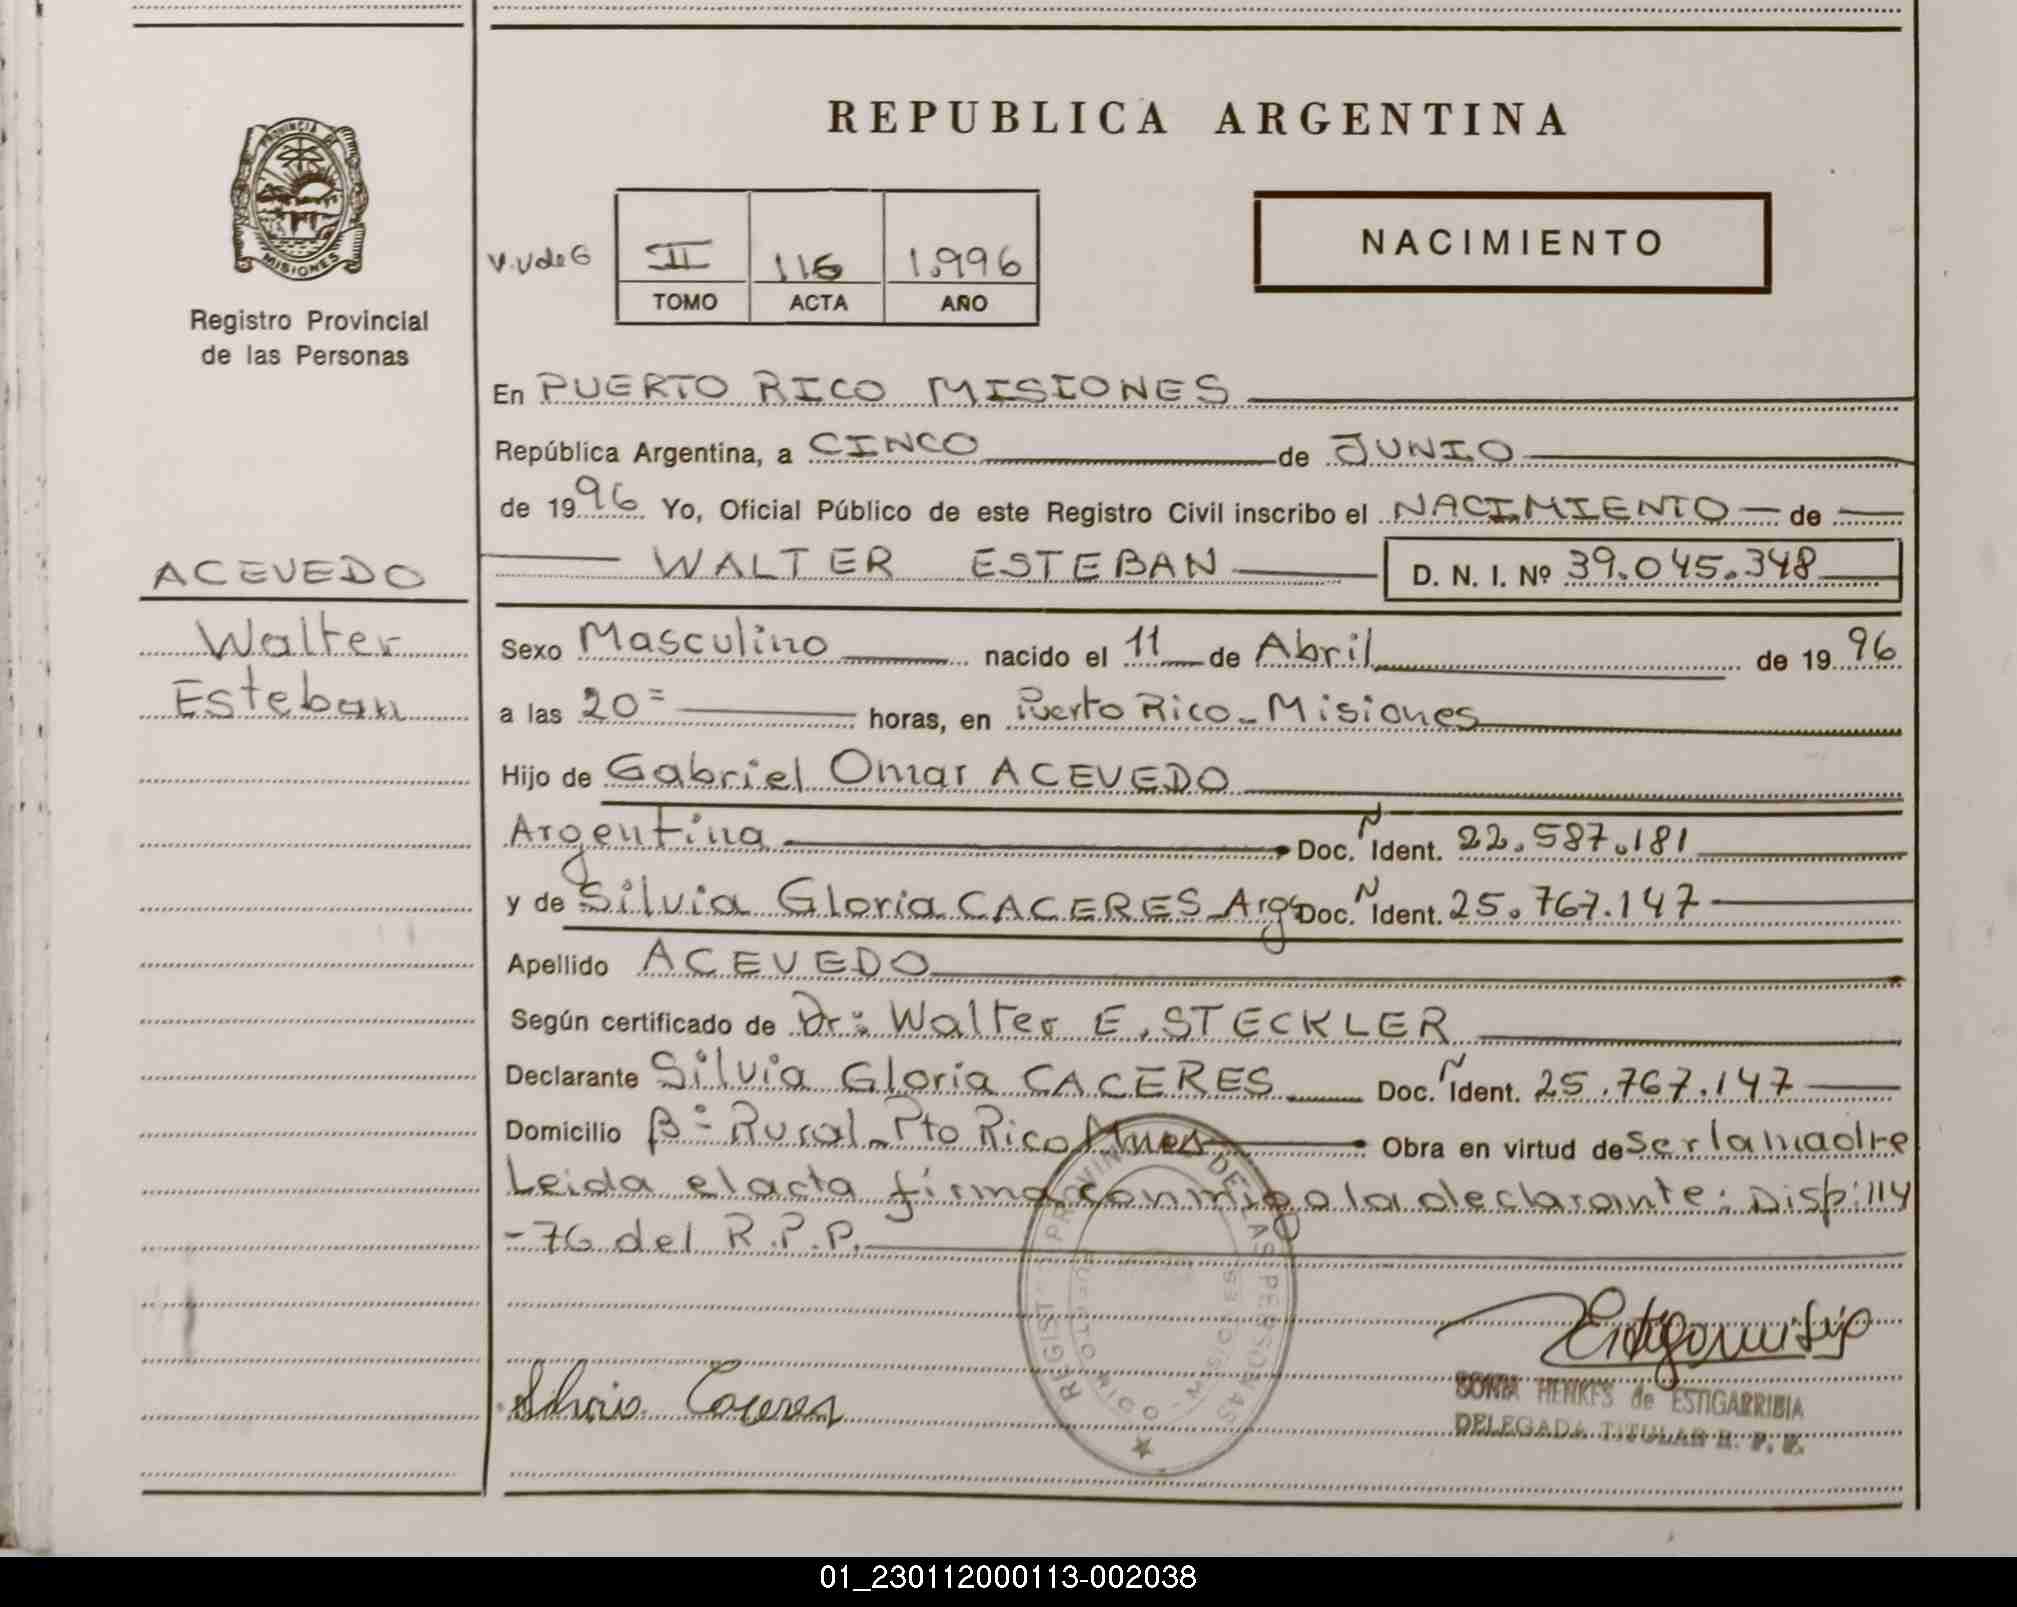 REPUBLICA ARGENTINA
PROVINCIA DE
MISIONES
Registro Provincial
de las Personas
NACIMIENTO
V.V de G
II 116 1.996
TOMO ACTA AÑO
En PUERTO RICO MISIONES
República Argentina, a CINCO de JUNIO
de 1996 Yo, Oficial Público de este Registro Civil inscribo el NACIMIENTO de
WALTER ESTEBAN D. N. I. Nº 39.045.348
ACEVEDO
Walter
Esteban
Sexo Masculino nacido el 11 de Abril de 1996
a las 20= horas, en Puerto Rico - Misiones
Hijo de Gabriel Omar ACEVEDO
Argentina Doc. N Ident. 22.587.181
y de Silvia Gloria CACERES Arg Doc. N Ident. 25.767.147
Apellido ACEVEDO
Según certificado de Dr: Walter E. STECKLER
Declarante Silvia Gloria CACERES Doc. N Ident. 25.767.147
Domicilio Bº Rural - Pto Rico Mnes Obra en virtud de ser la madre
Leida el acta firma conmigo la declarante: Disp: 114
-76 del R.P.P.
Silvia Caceres
SONIA HENKES de ESTIGARRIBIA
DELEGADA TITULAR R. P. P.
01_230112000113-002038